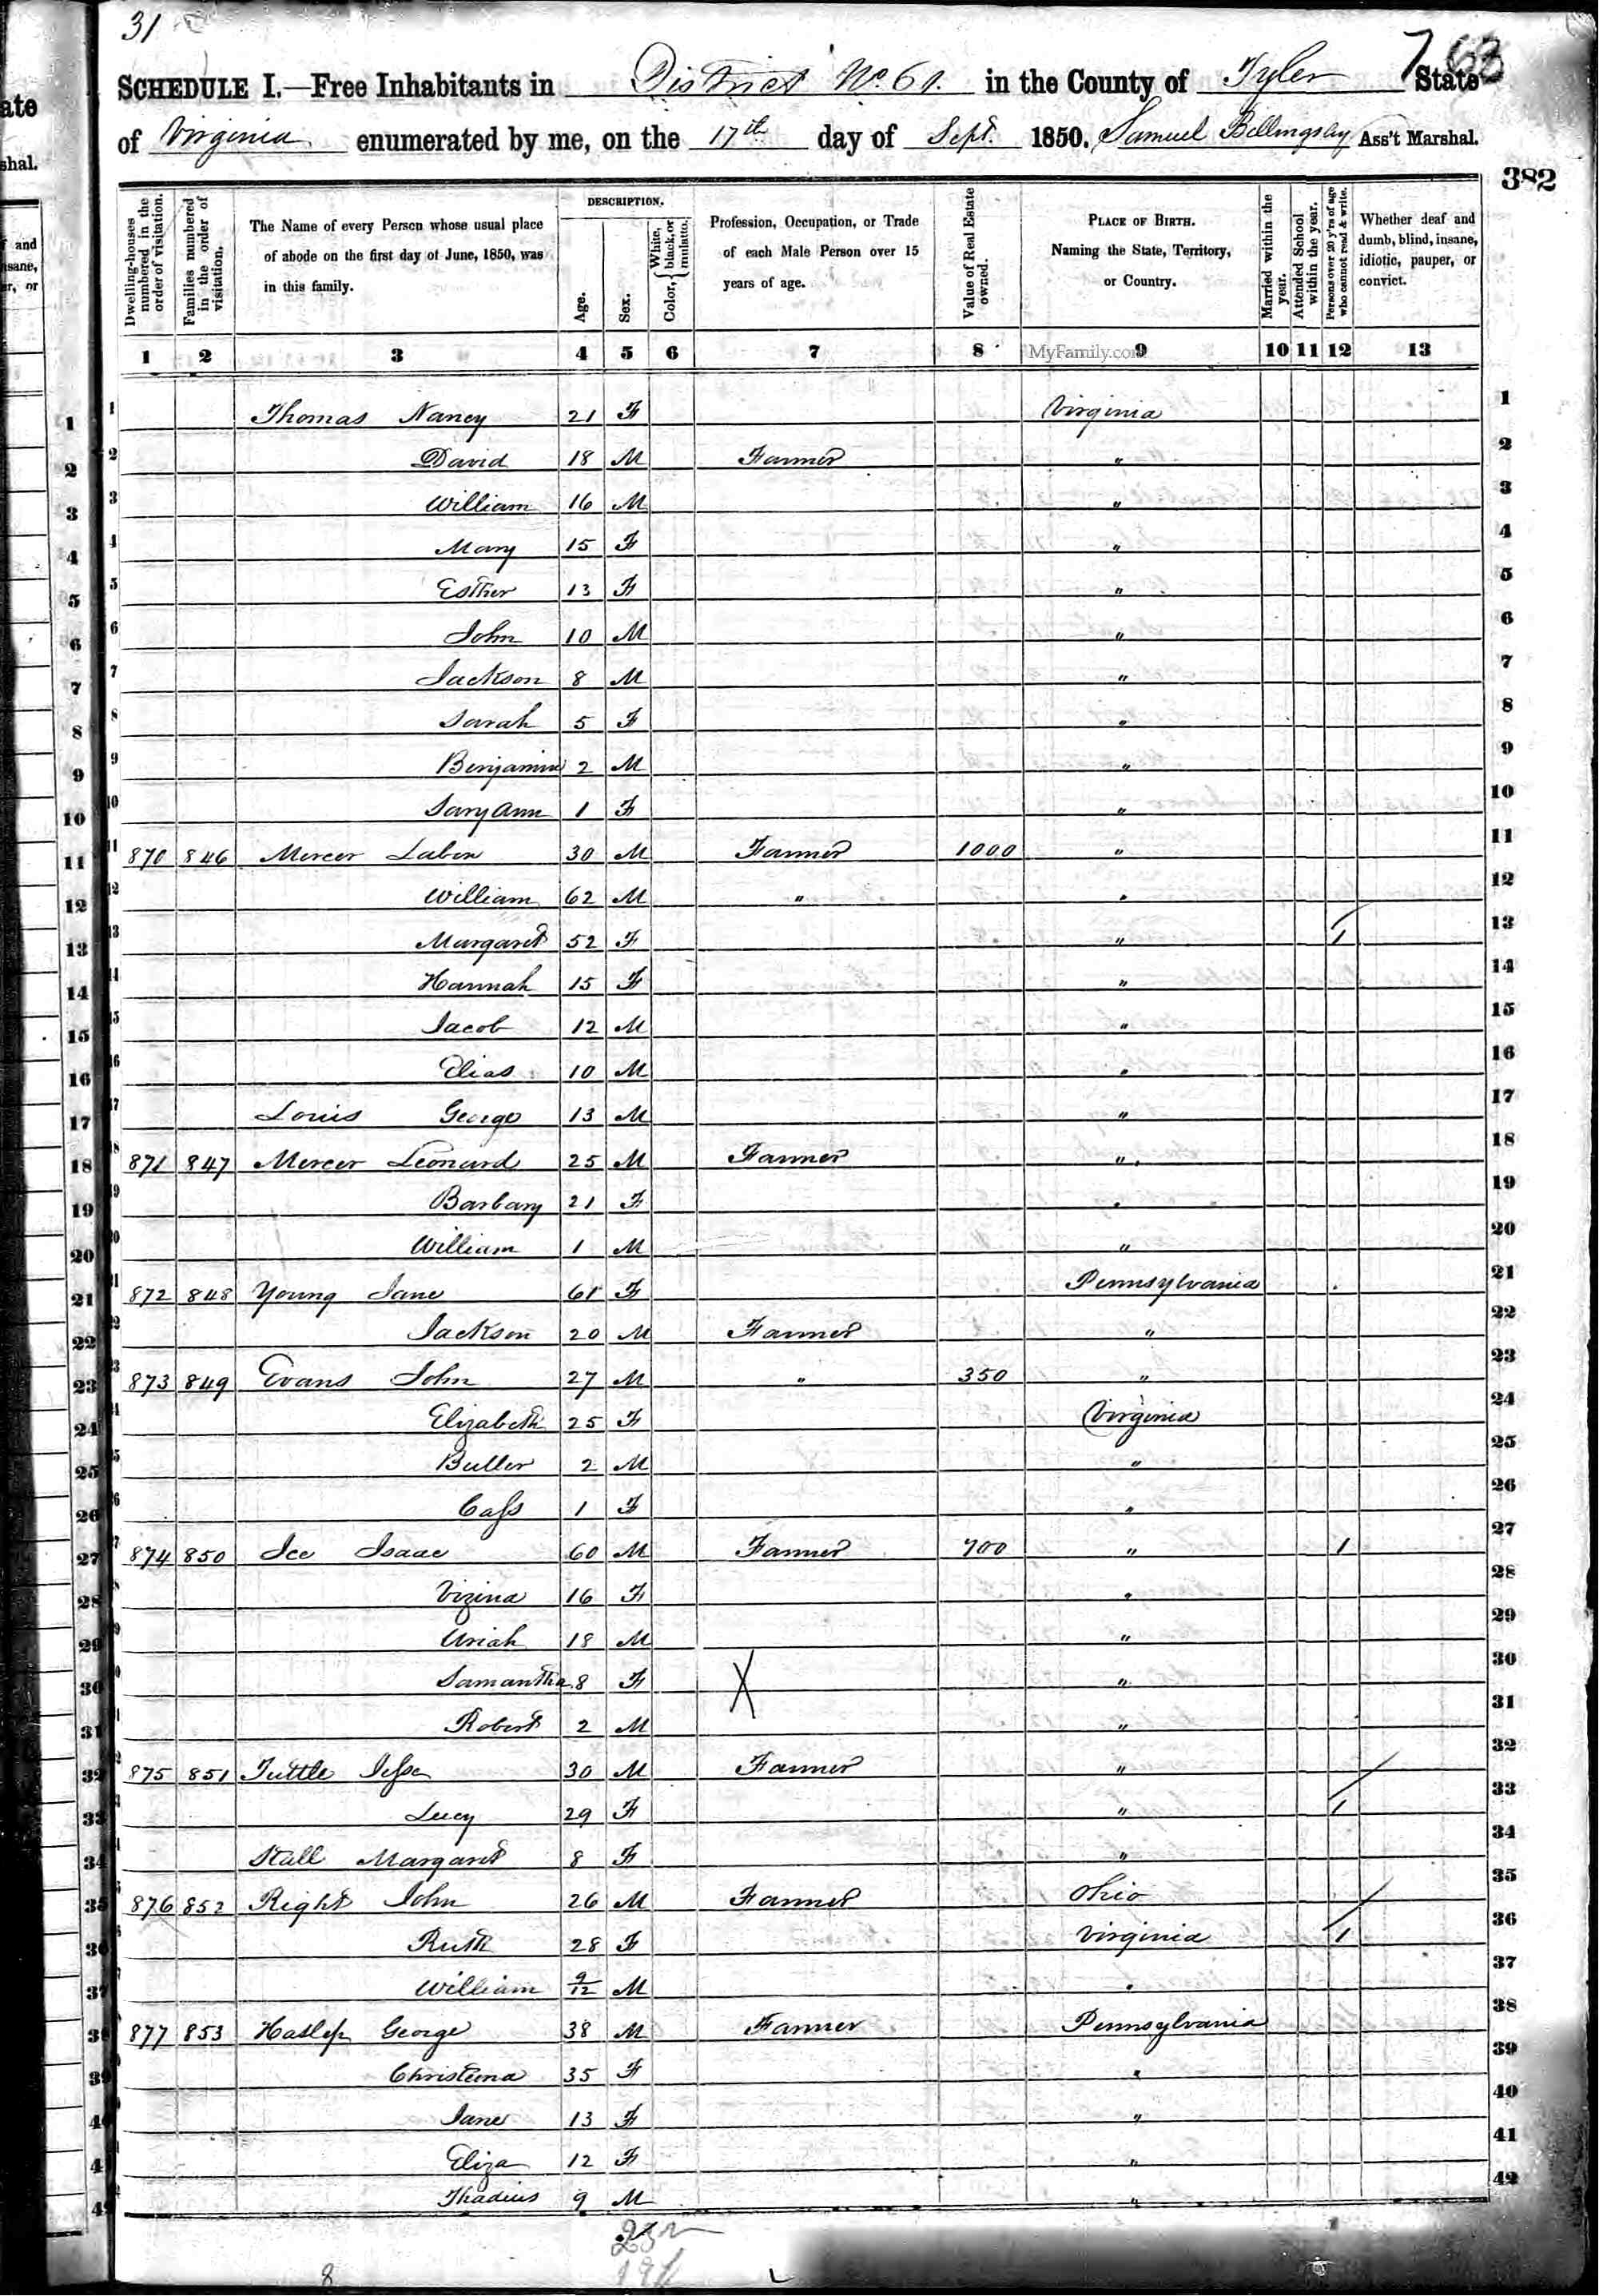 31
7 63
SCHEDULE I.—Free Inhabitants in District No. 61. in the County of Tyler State
of Virginia enumerated by me, on the 17th day of Sept. 1850. Samuel Billingsley Ass't Marshal.
382
Dwelling-houses numbered in the order of visitation.
Families numbered in the order of visitation.
The Name of every Person whose usual place of abode on the first day of June, 1850, was in this family.
DESCRIPTION.
Age.
Sex.
Color, { White, black, or mulatto.
Profession, Occupation, or Trade of each Male Person over 15 years of age.
Value of Real Estate owned.
PLACE OF BIRTH.
Naming the State, Territory, or Country.
Married within the year.
Attended School within the year.
Persons over 20 y'rs of age who cannot read & write.
Whether deaf and dumb, blind, insane, idiotic, pauper, or convict.
1 2 3 4 5 6 7 8 9 10 11 12 13
MyFamily.com
1 Thomas Nancy 21 F Virginia 1
2 David 18 M Farmer " 2
3 William 16 M " 3
4 Mary 15 F " 4
5 Esther 13 F " 5
6 John 10 M " 6
7 Jackson 8 M " 7
8 Sarah 5 F " 8
9 Benjamin 2 M " 9
10 Sary Ann 1 F " 10
11 870 846 Mercer Laben 30 M Farmer 1000 " 11
12 William 62 M " " 12
13 Margaret 52 F " 1 13
14 Hannah 15 F " 14
15 Jacob 12 M " 15
16 Elias 10 M " 16
17 Louis George 13 M " 17
18 871 847 Mercer Leonard 25 M Farmer " 18
19 Barbary 21 F " 19
20 William 1 M " 20
21 872 848 Young Jane 61 F Pennsylvania 21
22 Jackson 20 M Farmer " 22
23 873 849 Evans John 27 M " 350 " 23
24 Elizabeth 25 F Virginia 24
25 Butler 2 M " 25
26 Cass 1 F " 26
27 874 850 Ice Isaac 60 M Farmer 700 " 1 27
28 Vizina 16 F " 28
29 Uriah 18 M " 29
30 Samantha 8 F X " 30
31 Robert 2 M " 31
32 875 851 Tuttle Jesse 30 M Farmer " 32
33 Lucy 29 F " 1 33
34 Stall Margaret 8 F " 34
35 876 852 Right John 26 M Farmer Ohio 35
36 Ruth 28 F Virginia 1 36
37 William 9/12 M " 37
38 877 853 Haslep George 38 M Farmer Pennsylvania 38
39 Christena 35 F " 39
40 Jane 13 F " 40
41 Eliza 12 F " 41
42 Thadius 9 M " 42
8